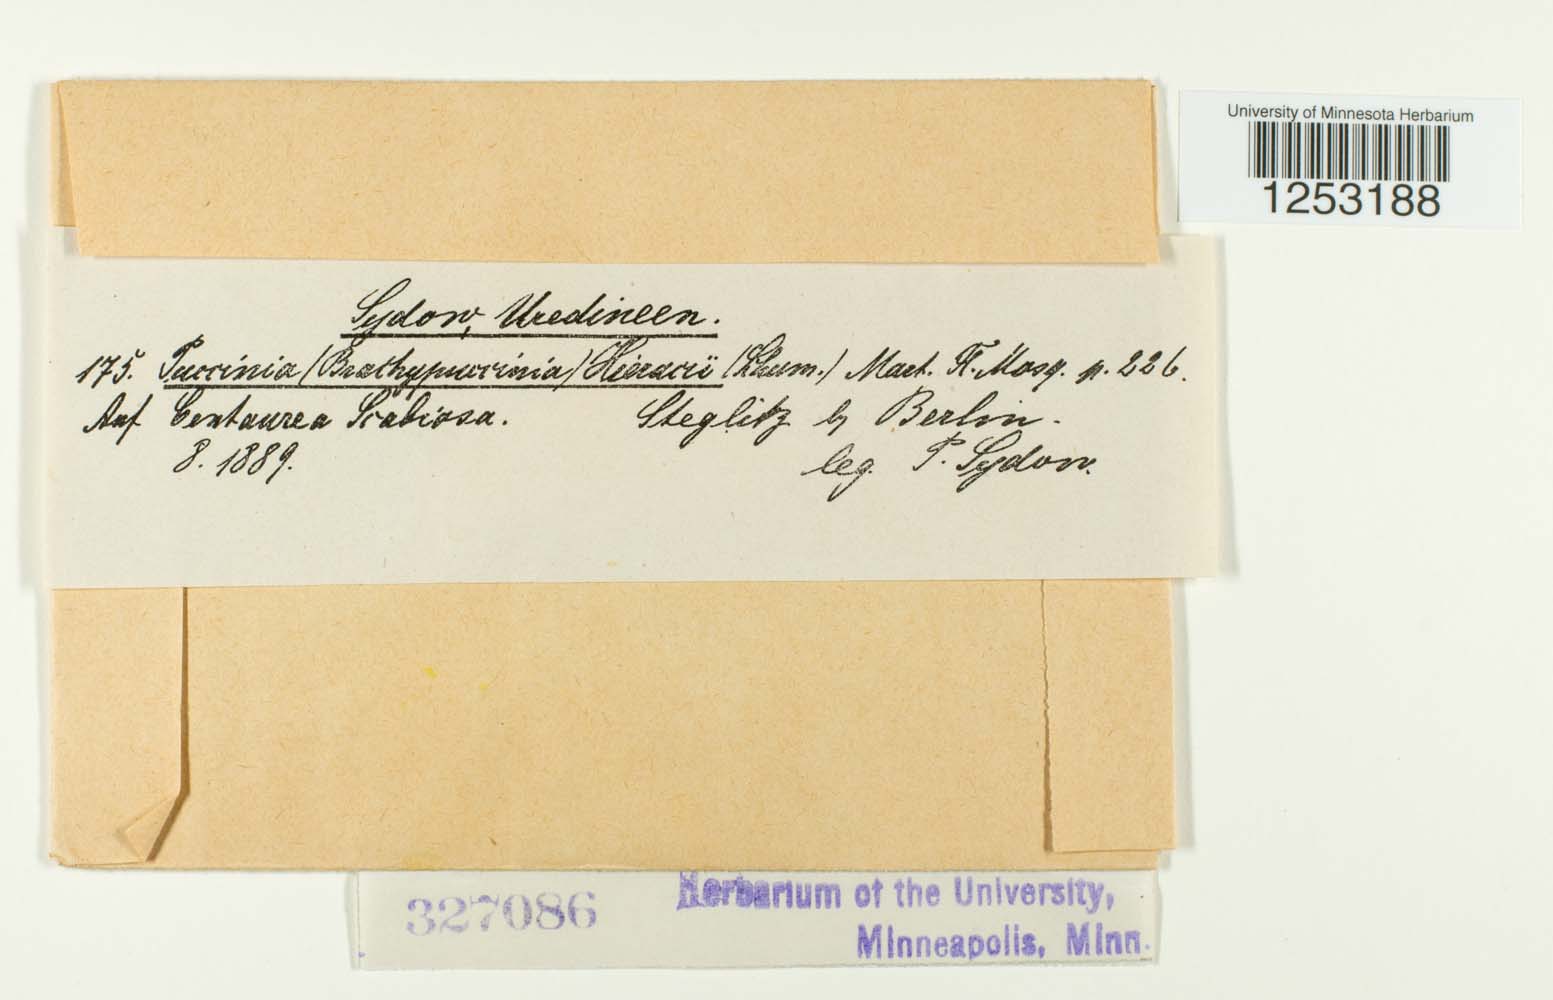 University of Minnesota Herbarium
1253188
Sydow, Uredineen.
175. Puccinia (Brachypuccinia) Hieracii (Schum.) Mart. Fl. Mosq. p. 226.
Auf Centaurea Scabiosa. Steglitz b. Berlin.
8. 1889. leg. P. Sydow.
327086
Herbarium of the University,
Minneapolis, Minn.